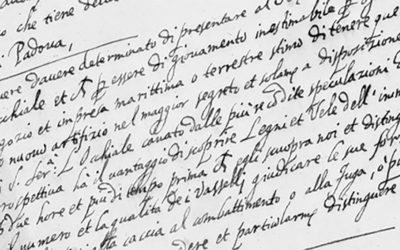 ro che tiene del
i Padova,
vere d'avere determinato di presentare al
chiale et per essere di giovamento inestimabile per
gozio et impresa marittima o terrestre stimo di tenere que
nuovo artifizio nel maggior segreto et solam a disposizione
S. Ser: L'Ochiale cavato dalle più recōdite speculazioni
rospettiva ha il vantaggio di scoprire Legni et Vele dell' inim
Due hore et più di tempo prima egli scuopra noi et disting
numero et la qualità dei Vasselli giudicare le sue for
alla caccia al combattimento o alla fuga, o
dere et particolarmē distinguere